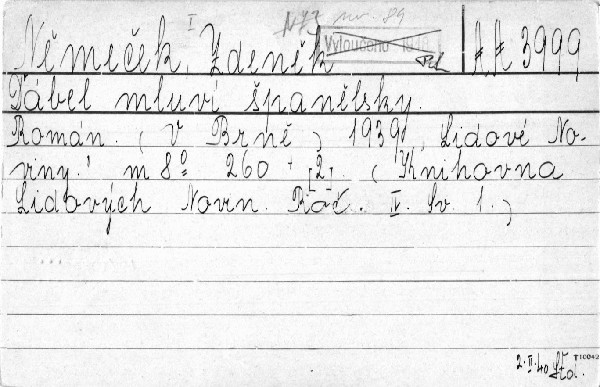 Němeček, Zdeněk
I
Vyloučeno
AA 3999
Ďábel mluví španělsky.
Román. (V Brně, 1939, Lidové No-
viny.) m 8° 260 + [2]. (Knihovna
Lidových Novin. Roč. IV. Sv. 1.)
2.II.40
T10042